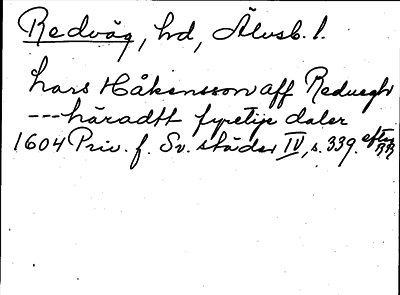 Redväg, hd, Älvsb. l.
Lars Håkansson aff Reduegh
---häradtt fyretije daler
1604 Priv. f. Sv. städer IV, s. 339. efter RR